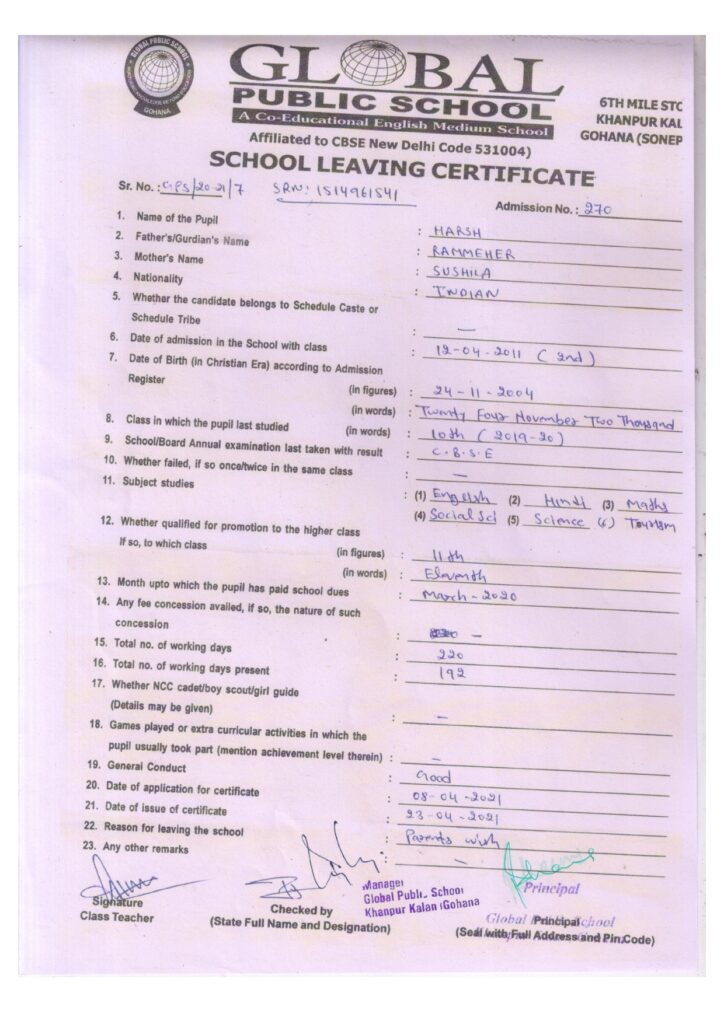 GLOBAL PUBLIC SCHOOL
GOHANA
GLOBAL
PUBLIC SCHOOL
A Co-Educational English Medium School
6TH MILE STO
KHANPUR KAL
GOHANA (SONEP
Affiliated to CBSE New Delhi Code 531004)
SCHOOL LEAVING CERTIFICATE
Sr. No. : GPS/20-21/7 SRN: 1514961541
Admission No. : 270
1. Name of the Pupil : HARSH
2. Father's/Gurdian's Name : RAMMEHER
3. Mother's Name : SUSHILA
4. Nationality : INDIAN
5. Whether the candidate belongs to Schedule Caste or
Schedule Tribe : —
6. Date of admission in the School with class : 12-04-2011 (2nd)
7. Date of Birth (in Christian Era) according to Admission
Register (in figures) : 24-11-2004
(in words) : Twenty Four November Two Thousand
8. Class in which the pupil last studied (in words) : 10th (2019-20)
9. School/Board Annual examination last taken with result : C.B.S.E
10. Whether failed, if so once/twice in the same class : —
11. Subject studies : (1) English (2) Hindi (3) Maths
(4) Social Sci (5) Science (6) Tourism
12. Whether qualified for promotion to the higher class
If so, to which class (in figures) : 11th
(in words) : Eleventh
13. Month upto which the pupil has paid school dues : March-2020
14. Any fee concession availed, if so, the nature of such
concession : —
15. Total no. of working days : 220
16. Total no. of working days present : 192
17. Whether NCC cadet/boy scout/girl guide
(Details may be given) : —
18. Games played or extra curricular activities in which the
pupil usually took part (mention achievement level therein) : —
19. General Conduct : Good
20. Date of application for certificate : 08-04-2021
21. Date of issue of certificate : 23-04-2021
22. Reason for leaving the school : Parents wish
23. Any other remarks : —
Signature
Class Teacher
Checked by
(State Full Name and Designation)
Manager
Global Public School
Khanpur Kalan (Gohana
Principal
Global Public School
Principal
(Seal with Full Address and Pin Code)